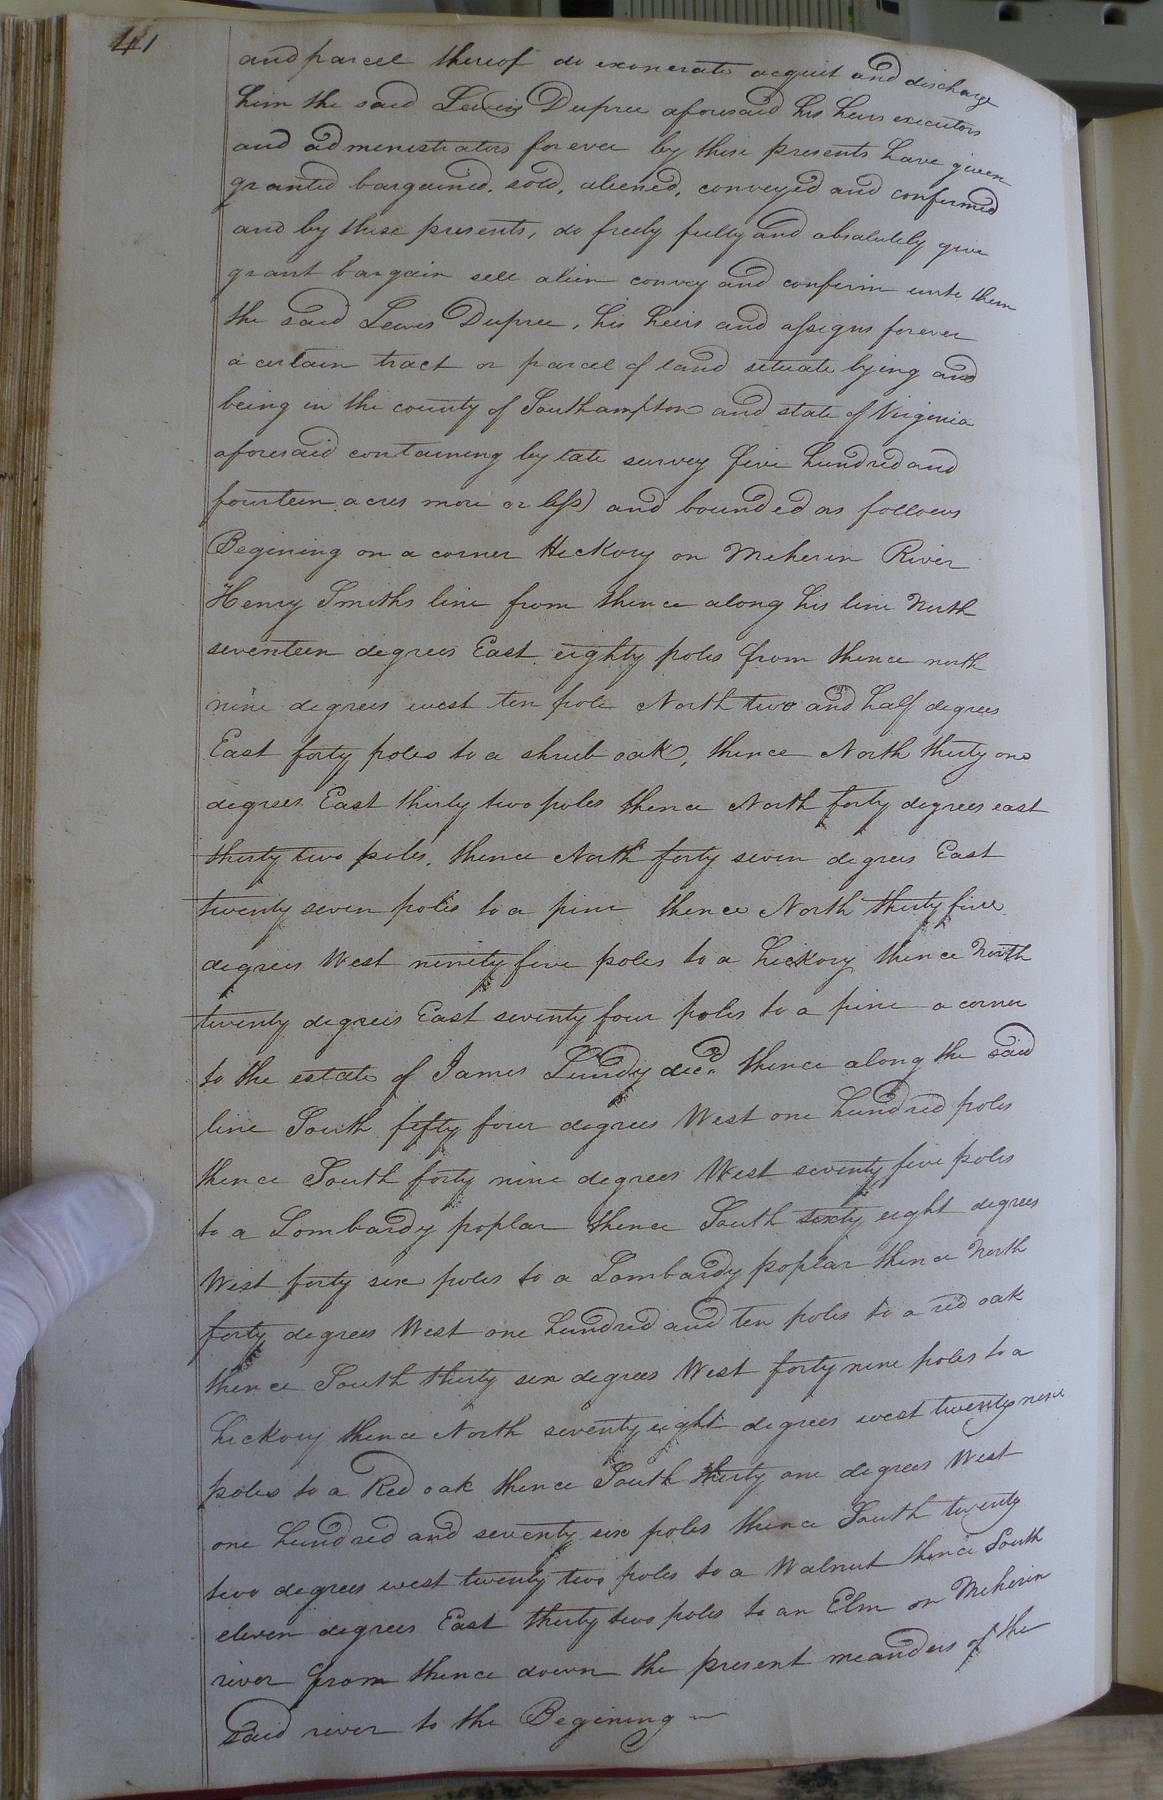 41
and parcel thereof do exonerate acquit and discharge
him the said Lewis Dupree aforesaid his heirs executors
and administrators forever by these presents have given
granted bargained, sold, aliened, conveyed and confirmed
and by these presents, do freely fully and absolutely give
grant bargain sell alien convey and confirm unto them
the said Lewis Dupree, his heirs and assigns forever
a certain tract or parcel of land situate lying and
being in the county of Southampton and state of Virginia
aforesaid containing by late survey five hundred and
fourteen acres more or less) and bounded as follows
Begining on a corner Hickory on Meherin River
Henry Smiths line from thence along his line North
seventeen degrees East eighty poles from thence north
nine degrees west ten pole North two and half degrees
East forty poles to a shrub oak, thence North thirty one
degrees East thirty two poles thence North forty degrees east
thirty two poles, thence North forty seven degrees East
twenty seven poles to a pine thence North thirty five
degrees West ninety five poles to a hickory thence North
twenty degrees East seventy four poles to a pine a corner
to the estate of James Lundy decd. thence along the said
line South fifty four degrees West one hundred poles
thence South forty nine degrees West seventy five poles
to a Lombardy poplar thence South sixty eight degrees
West forty six poles to a Lombardy poplar thence North
forty degrees West one hundred and ten poles to a red oak
thence South thirty six degrees West forty nine poles to a
hickory thence North seventy eight degrees west twenty nine
poles to a Red oak thence South thirty one degrees West
one hundred and seventy six poles thence South twenty
two degrees west twenty two poles to a Walnut thence South
eleven degrees East thirty two poles to an Elm on Meherin
river from thence down the present meanders of the
said river to the Begining